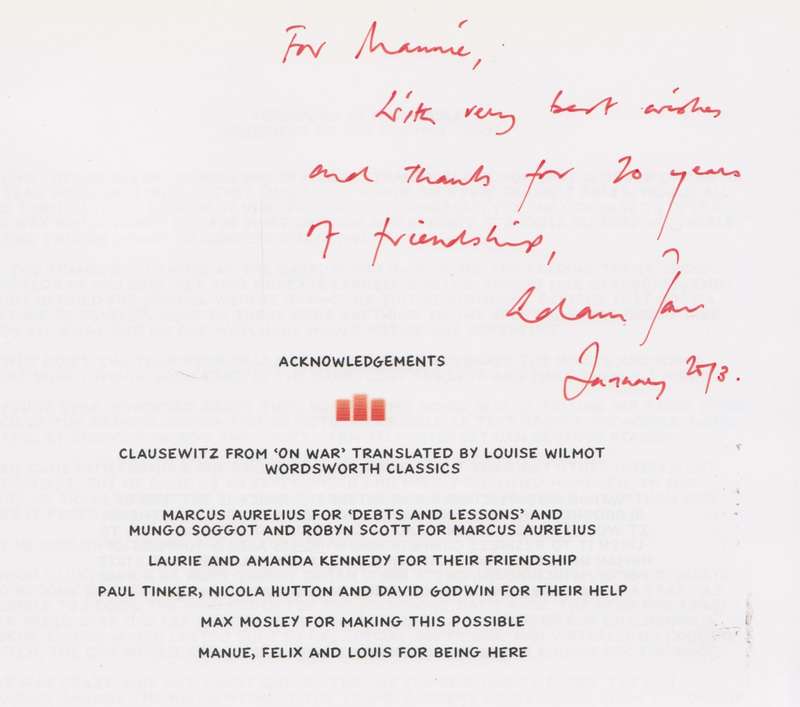 For Mannie,
With very best wishes
and thanks for 20 years
of friendship,
Adam
January 2013.
ACKNOWLEDGEMENTS
CLAUSEWITZ FROM ‘ON WAR’ TRANSLATED BY LOUISE WILMOT
WORDSWORTH CLASSICS
MARCUS AURELIUS FOR ‘DEBTS AND LESSONS’ AND
MUNGO SOGGOT AND ROBYN SCOTT FOR MARCUS AURELIUS
LAURIE AND AMANDA KENNEDY FOR THEIR FRIENDSHIP
PAUL TINKER, NICOLA HUTTON AND DAVID GODWIN FOR THEIR HELP
MAX MOSLEY FOR MAKING THIS POSSIBLE
MANUE, FELIX AND LOUIS FOR BEING HERE